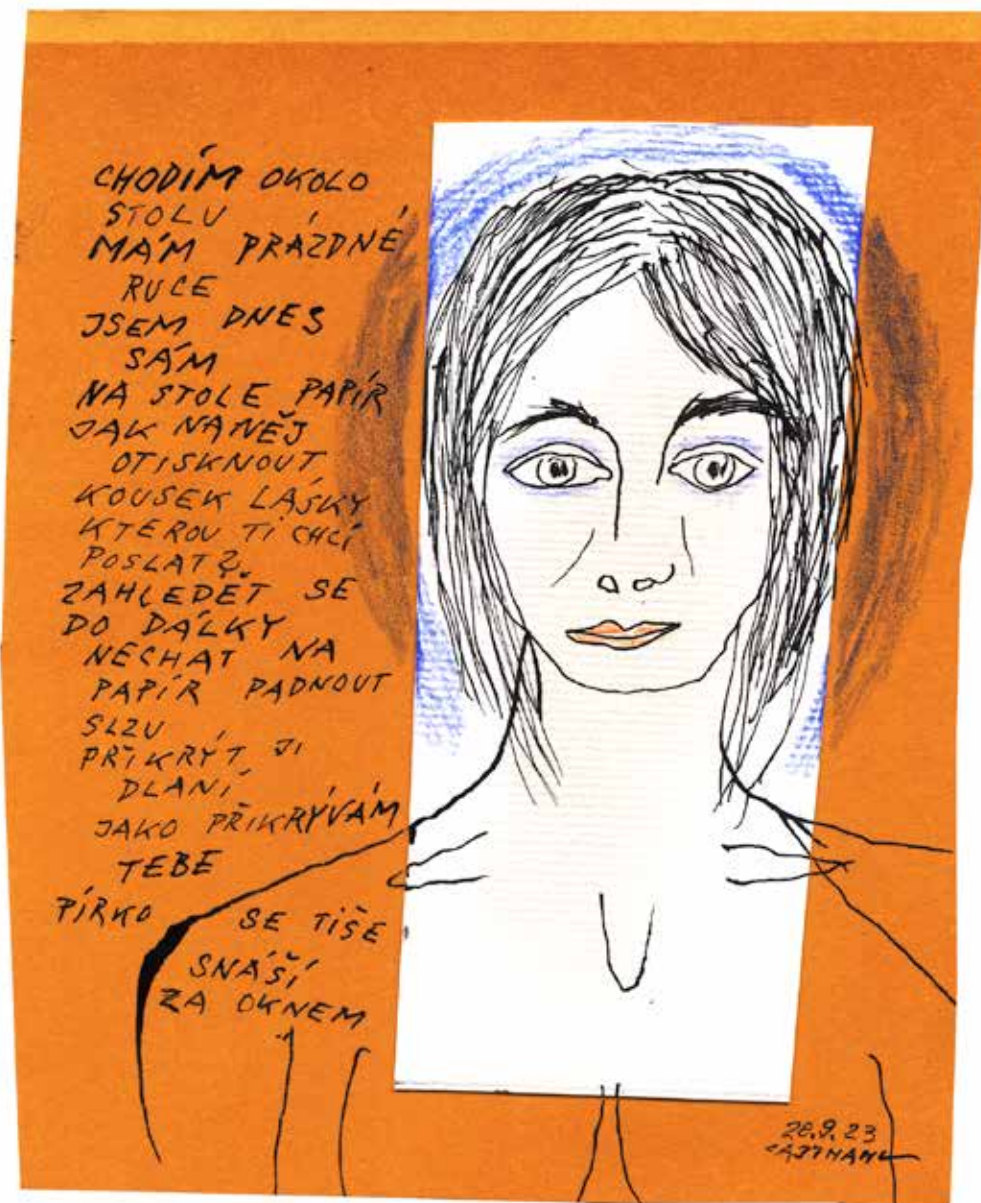 CHODÍM OKOLO
STOLU
MÁM PRÁZDNÉ
RUCE
JSEM DNES
SÁM
NA STOLE PAPÍR
JAK NA NĚJ
OTISKNOUT
KOUSEK LÁSKY
KTEROU TI CHCI
POSLAT?
ZAHLEDĚT SE
DO DÁLKY
NECHAT NA
PAPÍR PADNOUT
SLZU
PŘIKRÝT JI
DLANÍ
JAKO PŘIKRÝVÁM
TEBE
PÍRKO SE TIŠE
SNÁŠÍ
ZA OKNEM
20.9.23